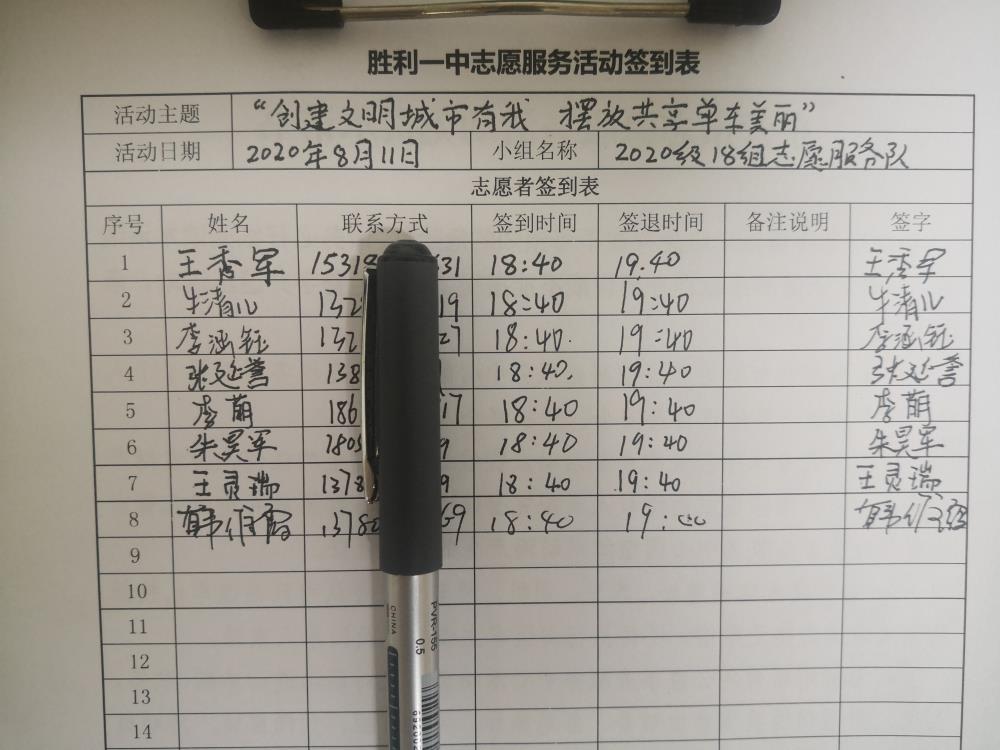 胜利一中志愿服务活动签到表
活动主题 “创建文明城市有我 摆放共享单车美丽”
活动日期 2020年8月11日 小组名称 2020级18组志愿服务队
志愿者签到表
序号 姓名 联系方式 签到时间 签退时间 备注说明 签字
1 王秀军 1531 31 18:40 19:40 王秀军
2 牛清儿 132 19 18:40 19:40 牛清儿
3 李涵钰 132 27 18:40 19:40 李涵钰
4 张延誉 138 18:40 19:40 张延誉
5 李萌 186 17 18:40 19:40 李萌
6 朱昊军 1805 9 18:40 19:40 朱昊军
7 王灵瑞 1378 9 18:40 19:40 王灵瑞
8 韩 1378 69 18:40 19: 韩
9
10
11
12
13
14
CHINA
PVR-155
0.5